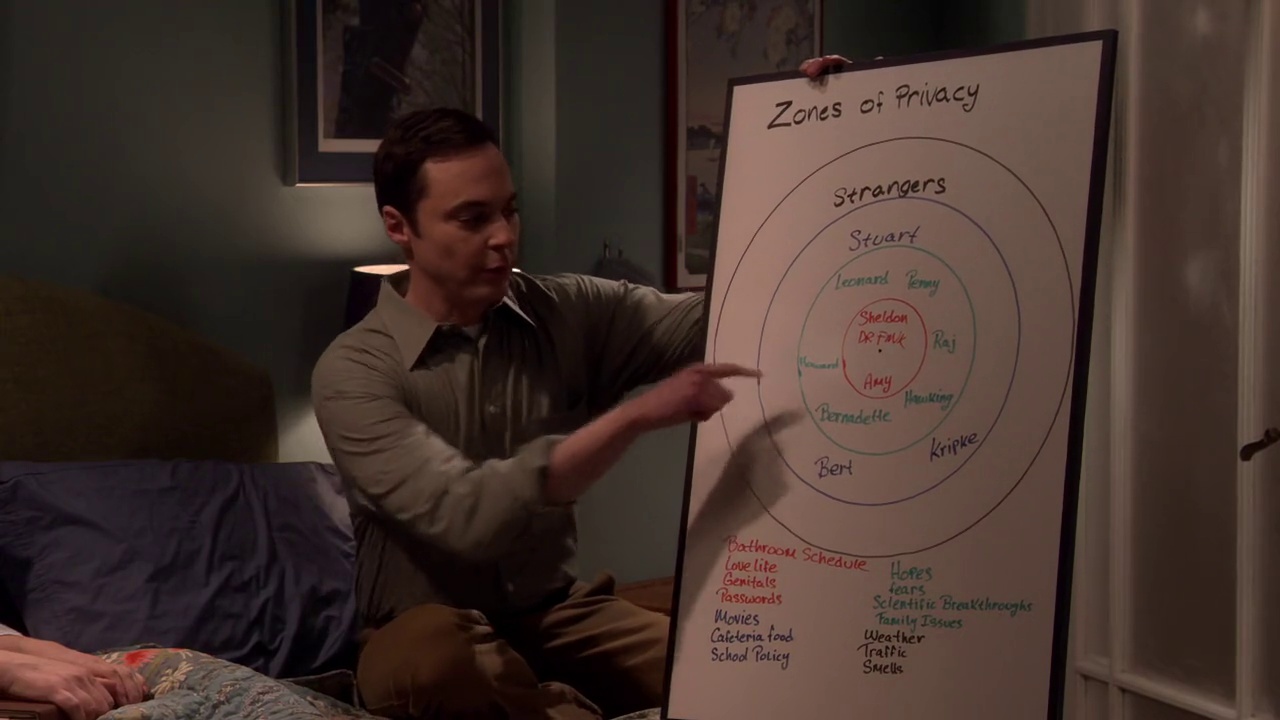 Zones of Privacy
Strangers
Stuart
Leonard Penny
Sheldon
DR.FMLK
Howard Raj
Amy
Hawking
Bernadette
Kripke
Bert
Bathroom Schedule
Love life
Genitals
Passwords
Movies
Cafeteria food
School Policy
Hopes
fears
Scientific Breakthroughs
Family Issues
Weather
Traffic
Smells